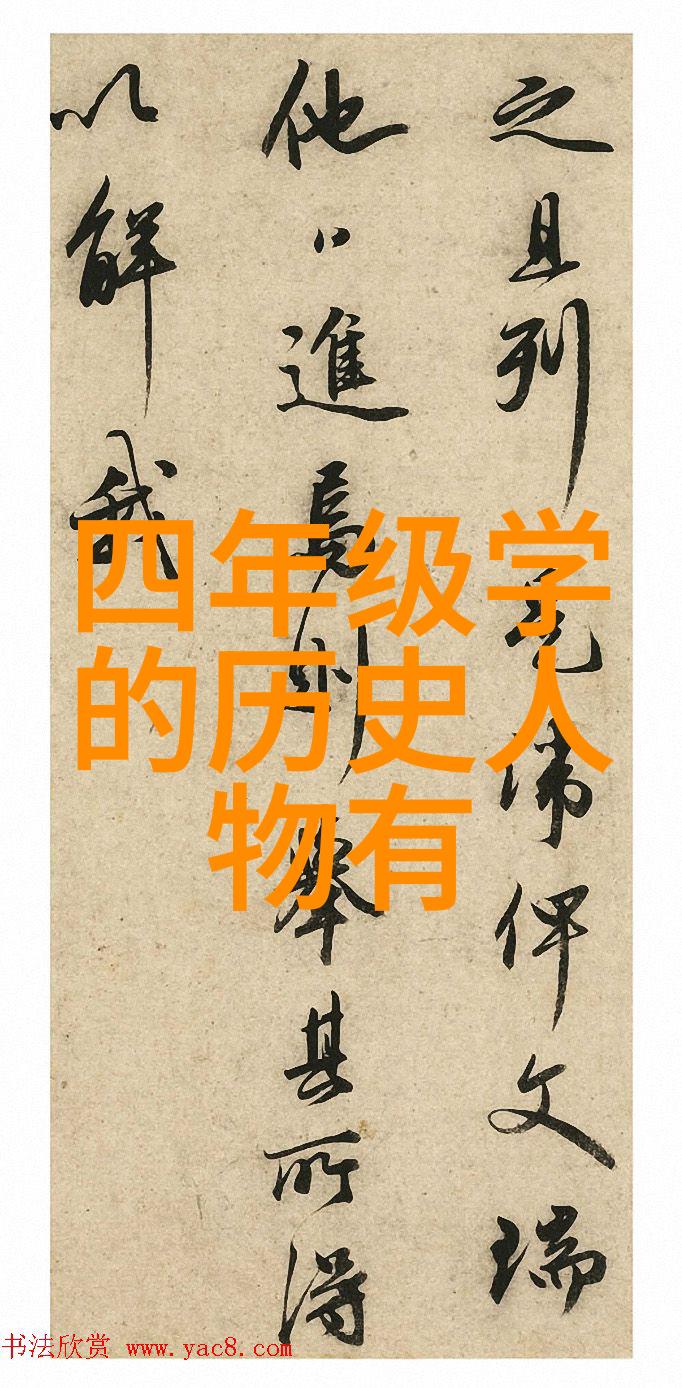 之且列
毫沸俾文瑞
他日進焉則舉其所得
以解我
四年级学
的历史人
物有
书法欣赏 www.yac8.com